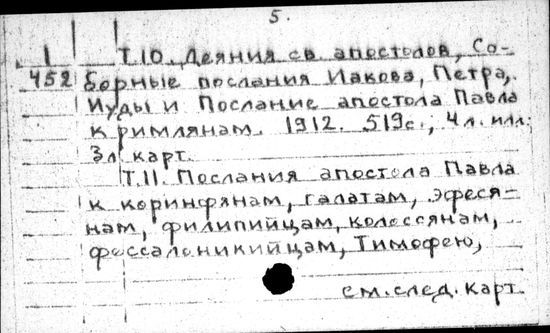 5.
1 Т.10. Деяния св. апостолов, Со-
452 борные послания Иакова, Петра,
Иуды и Послание апостола Павла
к римлянам. 1912. 519с., 4 л. илл.
3л карт.
Т.11. Послания апостола Павла
к коринфянам, галатам, эфеся-
нам, филипийцам, колоссянам,
фессалоникийцам, Тимофею,
см. след. карт.